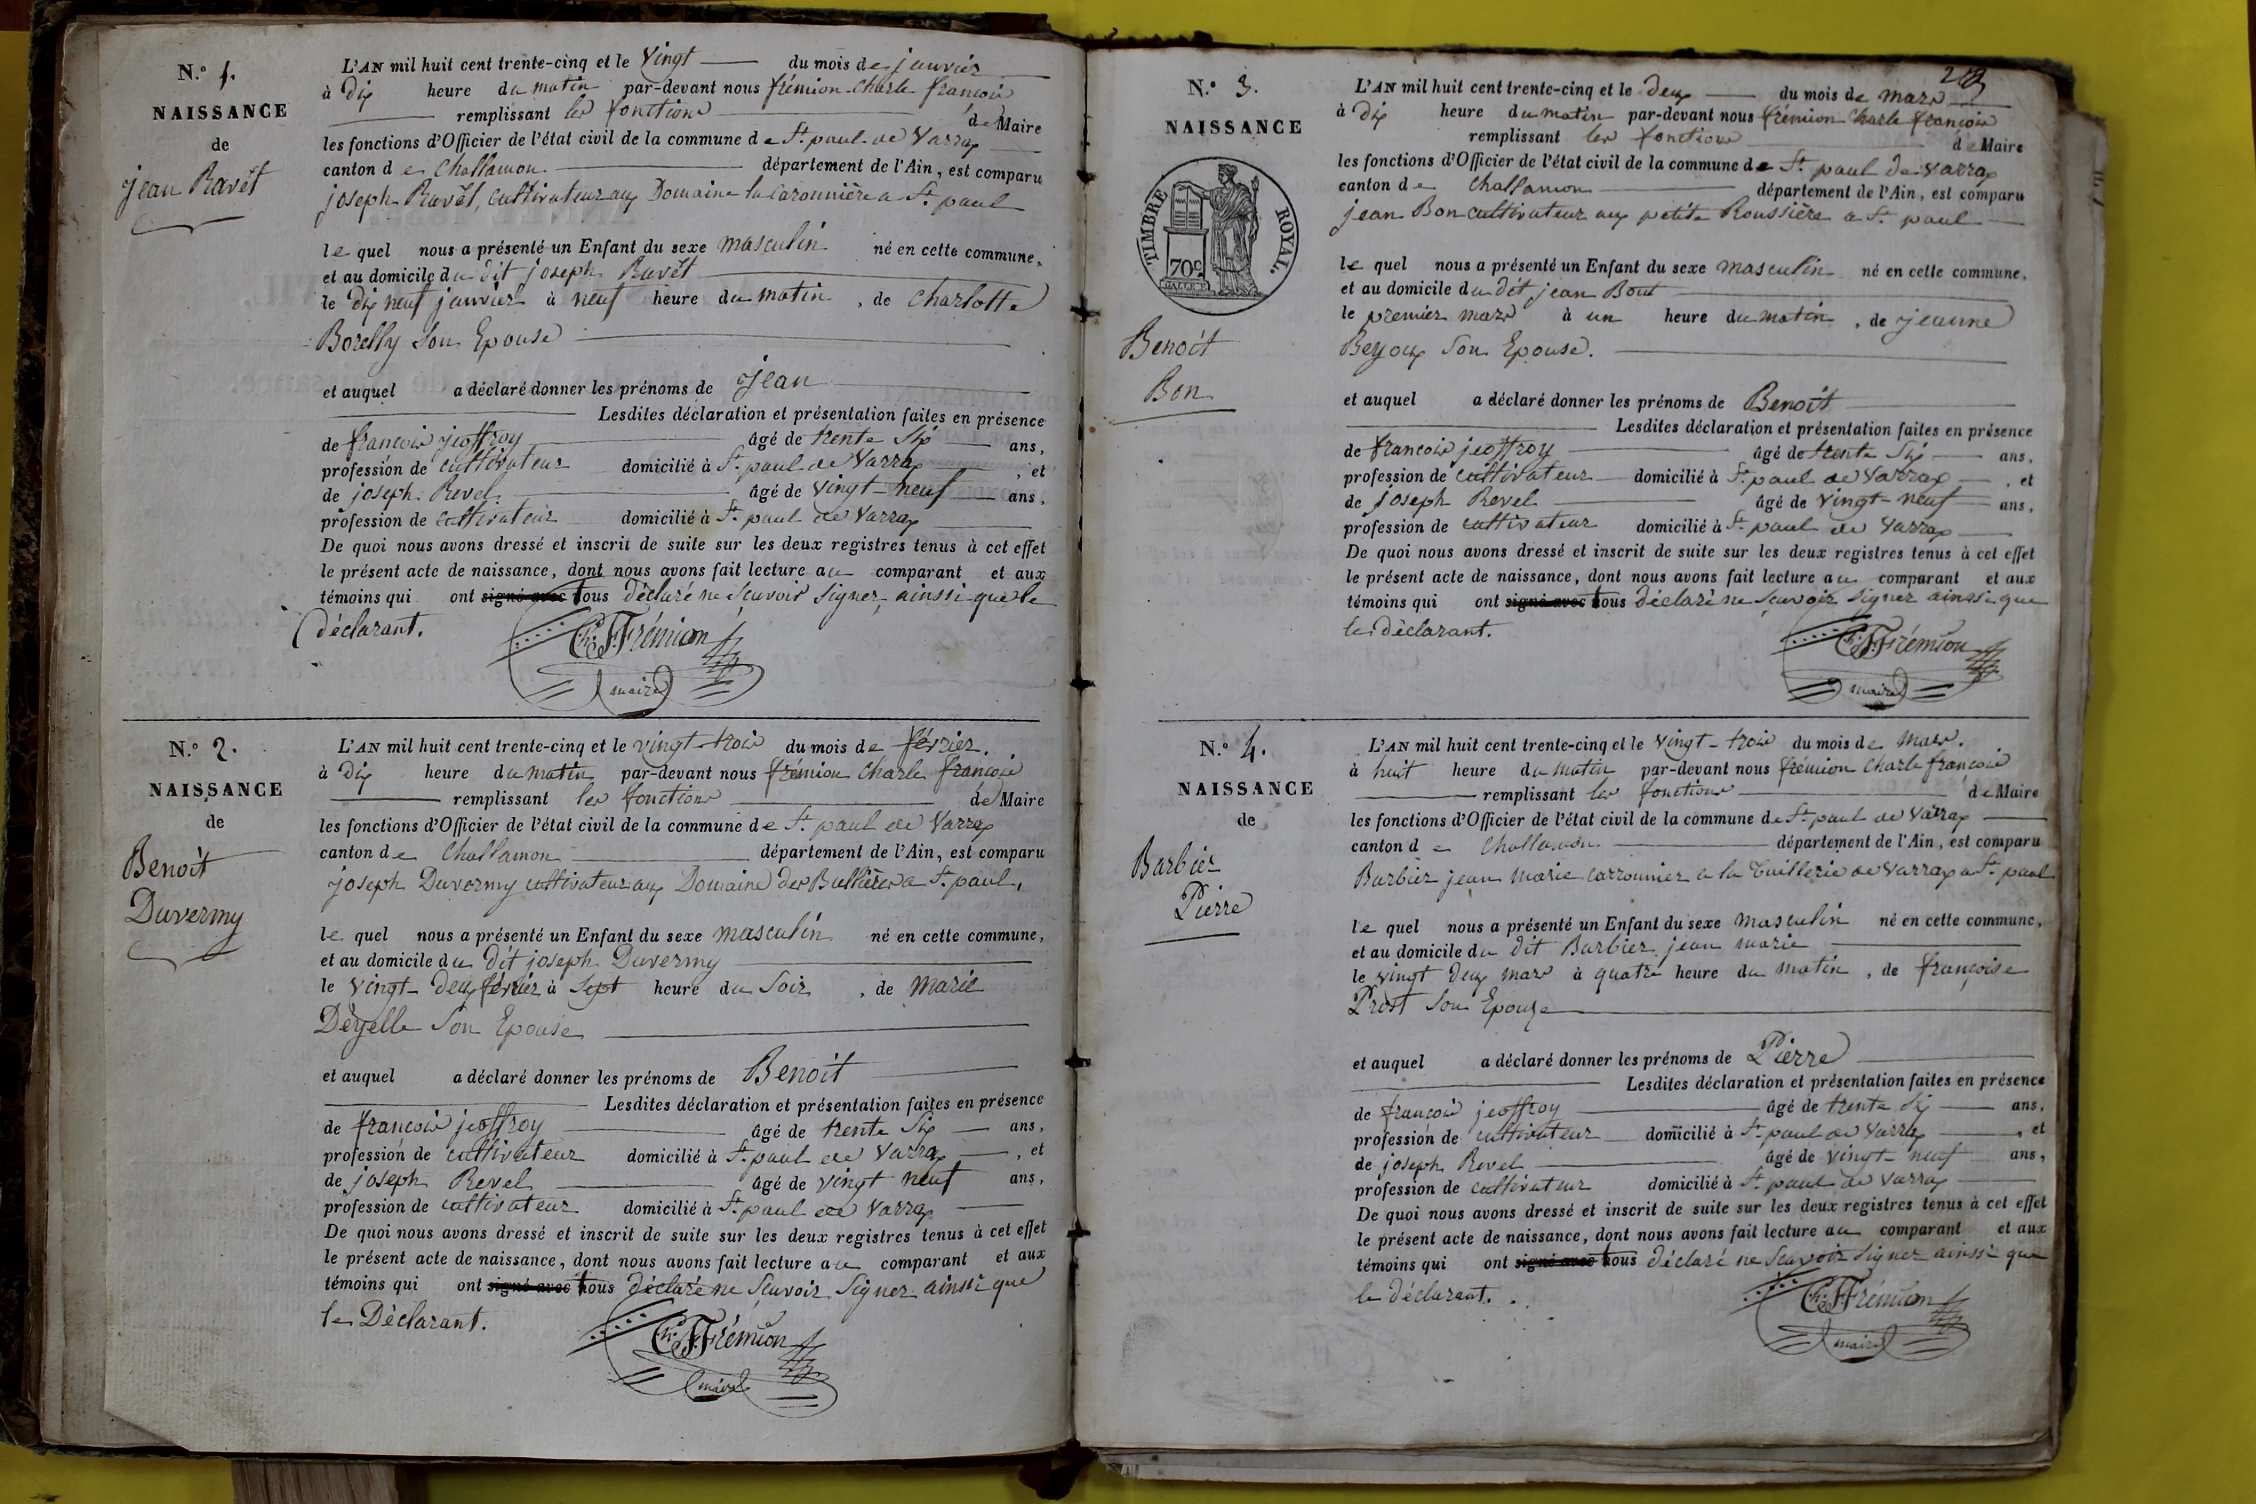 N.° 1.
NAISSANCE
de
jean Ravêt
L'AN mil huit cent trente-cinq et le Vingt du mois de janvier
à dix heure du matin par-devant nous frémion Charle françois
remplissant les fonctions de Maire
les fonctions d'Officier de l'état civil de la commune de St. paul de Varax
canton de Challamon département de l'Ain, est comparu
joseph Ravêt, cultivateur au Domaine la Caronnière a St. paul
le quel nous a présenté un Enfant du sexe masculin né en cette commune,
et au domicile du dit joseph Ravêt
le dix neuf janvier à neuf heure du matin, de Charlotte
Borelly son Epouse
et auquel a déclaré donner les prénoms de jean
Lesdites déclaration et présentation faites en présence
de francois jeoffroy âgé de trente six ans,
profession de cultivateur domicilié à St. paul de Varax, et
de joseph Revel âgé de vingt-neuf ans,
profession de cultivateur domicilié à St. paul de Varax
De quoi nous avons dressé et inscrit de suite sur les deux registres tenus à cet effet
le présent acte de naissance, dont nous avons fait lecture au comparant et aux
témoins qui ont signé avec tous déclaré ne scavoir signer ainssi que le
déclarant.
Ch. F. Frémion
maire
N.° 2.
NAISSANCE
de
Benoit
Duvermy
L'AN mil huit cent trente-cinq et le vingt-trois du mois de février.
à dix heure du matin par-devant nous frémion Charle françois
remplissant les fonctions de Maire
les fonctions d'Officier de l'état civil de la commune de St. paul de Varax
canton de Challamon département de l'Ain, est comparu
joseph Duvermy cultivateur au Domaine des Bullières a St. paul,
le quel nous a présenté un Enfant du sexe masculin né en cette commune,
et au domicile du dit joseph Duvermy
le vingt-deux février à sept heure du soir, de marie
Déyelle son Epouse
et auquel a déclaré donner les prénoms de Benoit
Lesdites déclaration et présentation faites en présence
de francois jeoffroy âgé de trente six ans,
profession de cultivateur domicilié à St. paul de Varax, et
de joseph Revel âgé de vingt neuf ans,
profession de cultivateur domicilié à St. paul de Varax
De quoi nous avons dressé et inscrit de suite sur les deux registres tenus à cet effet
le présent acte de naissance, dont nous avons fait lecture au comparant et aux
témoins qui ont signé avec tous déclaré ne scavoir signer ainssi que
le Déclarant.
Ch. F. Frémion
maire
N.° 3.
NAISSANCE
TIMBRE ROYAL.
70c
Benoit
Bon
L'AN mil huit cent trente-cinq et le deux du mois de mars
à dix heure du matin par-devant nous frémion Charle françois
remplissant les fonctions de Maire
les fonctions d'Officier de l'état civil de la commune de St. paul de Varax
canton de Challamon département de l'Ain, est comparu
jean Bon cultivateur au petite Roussière a St. paul
le quel nous a présenté un Enfant du sexe masculin né en cette commune,
et au domicile du dit jean Bont
le premier mars à un heure du matin, de jeanne
Beyoux son Epouse.
et auquel a déclaré donner les prénoms de Benoit
Lesdites déclaration et présentation faites en présence
de francois jeoffroy âgé de trente six ans,
profession de cultivateur domicilié à St. paul de Varax, et
de joseph Revel âgé de vingt-neuf ans,
profession de cultivateur domicilié à St. paul de Varax
De quoi nous avons dressé et inscrit de suite sur les deux registres tenus à cet effet
le présent acte de naissance, dont nous avons fait lecture au comparant et aux
témoins qui ont signé avec tous déclaré ne scavoir signer ainssi que
le déclarant.
Ch. F. Frémion
maire
N.° 4.
NAISSANCE
de
Barbier
Pierre
L'AN mil huit cent trente-cinq et le Vingt-trois du mois de Mars.
à huit heure du matin par-devant nous frémion Charle françois
remplissant les fonctions de Maire
les fonctions d'Officier de l'état civil de la commune de St. paul de Varax
canton de Challamon département de l'Ain, est comparu
Barbier jean marie carronnier a la Tuillerie de Varax a St. paul
le quel nous a présenté un Enfant du sexe masculin né en cette commune,
et au domicile du dit Barbier jean marie
le vingt deux mars à quatre heure du matin, de françoise
Prost son Epouze
et auquel a déclaré donner les prénoms de Pierre
Lesdites déclaration et présentation faites en présence
de françois jeoffroy âgé de trente six ans,
profession de cultivateur domicilié à St. paul de Varax, et
de joseph Revel âgé de vingt-neuf ans,
profession de cultivateur domicilié à St. paul de Varax
De quoi nous avons dressé et inscrit de suite sur les deux registres tenus à cet effet
le présent acte de naissance, dont nous avons fait lecture au comparant et aux
témoins qui ont signé avec tous déclaré ne scavoir signer ainssi que
le déclarant.
Ch. F. Frémion
maire